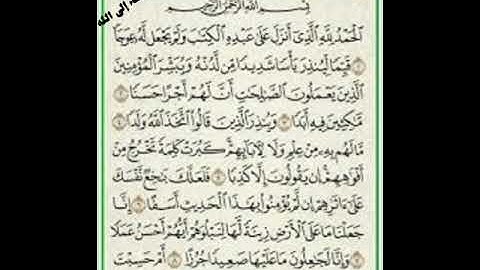 إلى الله
بِسْمِ اللَّهِ الرَّحْمَٰنِ الرَّحِيمِ
الْحَمْدُ لِلَّهِ الَّذِي أَنزَلَ عَلَىٰ عَبْدِهِ الْكِتَٰبَ وَلَمْ يَجْعَل لَّهُ عِوَجَا ۜ
١ قَيِّمًا لِّيُنذِرَ بَأْسًا شَدِيدًا مِّن لَّدُنْهُ وَيُبَشِّرَ الْمُؤْمِنِينَ
الَّذِينَ يَعْمَلُونَ الصَّٰلِحَٰتِ أَنَّ لَهُمْ أَجْرًا حَسَنًا ٢
مَّٰكِثِينَ فِيهِ أَبَدًا ٣ وَيُنذِرَ الَّذِينَ قَالُوا اتَّخَذَ اللَّهُ وَلَدًا ٤
مَّا لَهُم بِهِ مِنْ عِلْمٍ وَلَا لِآبَائِهِمْ ۚ كَبُرَتْ كَلِمَةً تَخْرُجُ مِنْ
أَفْوَٰهِهِمْ ۚ إِن يَقُولُونَ إِلَّا كَذِبًا ٥ فَلَعَلَّكَ بَٰخِعٌ نَّفْسَكَ
عَلَىٰ ءَاثَٰرِهِمْ إِن لَّمْ يُؤْمِنُوا بِهَٰذَا الْحَدِيثِ أَسَفًا ٦ إِنَّا
جَعَلْنَا مَا عَلَى الْأَرْضِ زِينَةً لَّهَا لِنَبْلُوَهُمْ أَيُّهُمْ أَحْسَنُ عَمَلًا
٧ وَإِنَّا لَجَٰعِلُونَ مَا عَلَيْهَا صَعِيدًا جُرُزًا ٨ أَمْ حَسِبْتَ